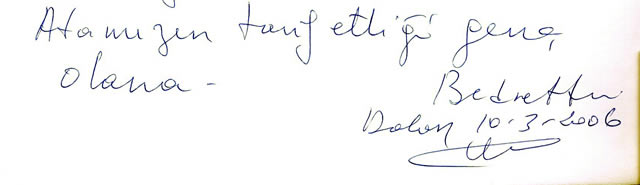 Atamızın tarif ettiği genç
olana -
Bedrettin
Dalan 10-3-2006